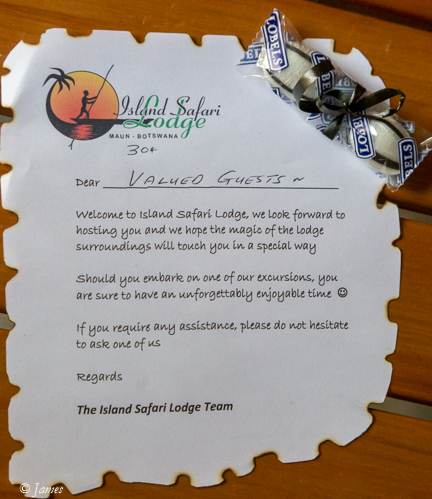 Island Safari
Lodge
MAUN - BOTSWANA
LOBELS
LOBELS
LOBELS
Dear VALUED GUESTS ~
Welcome to Island Safari Lodge, we look forward to
hosting you and we hope the magic of the lodge
surroundings will touch you in a special way
Should you embark on one of our excursions, you
are sure to have an unforgettably enjoyable time ☺
If you require any assistance, please do not hesitate
to ask one of us
Regards
The Island Safari Lodge Team
© James